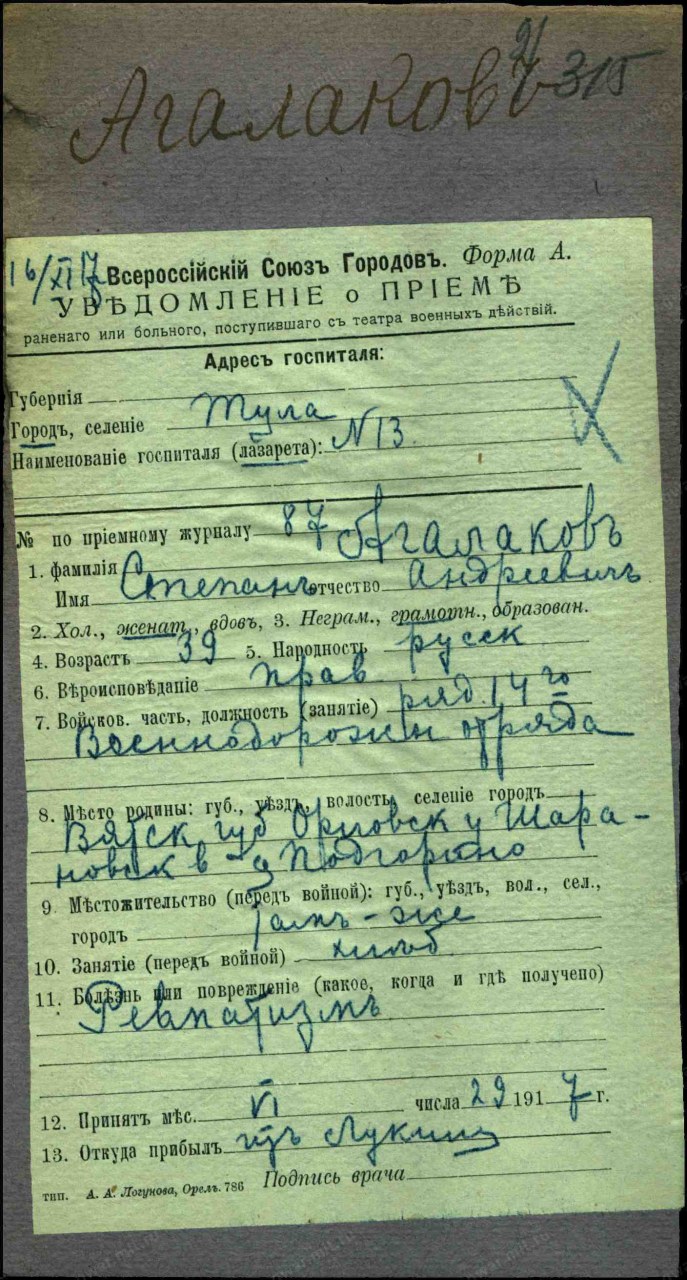 Агалаковъ 315
16/XI 17 Всероссійскій Союзъ Городовъ. Форма А.
УВѢДОМЛЕНІЕ о ПРІЕМѢ
раненаго или больного, поступившаго съ театра военныхъ дѣйствій.
Адресъ госпиталя:
Губернія
Городъ, селеніе Тула
Наименованіе госпиталя (лазарета): N 13
№ по пріемному журналу 87
1. фамилія Агалаковъ
Имя Степанъ отчество Андреевичъ
2. Хол., женат., вдовъ, 3. Неграм., грамотн., образован.
4. Возрастъ 39 5. Народность русск
6. Вѣроисповѣданіе прав
7. Войсков. часть, должность (занятіе) ряд. 14го
Военнодорожн отряда
8. Мѣсто родины: губ., уѣздъ, волость, селеніе городъ
Вятск губ Орловск у Шара-
новск в д Подгорино
9. Мѣстожительство (передъ войной): губ., уѣздъ, вол., сел.,
городъ тамъ-же
10. Занятіе (передъ войной) хлѣб
11. Болѣзнь или поврежденіе (какое, когда и гдѣ получено)
Ревматизмъ
12. Принятъ мѣс. VI числа 29 1917 г.
13. Откуда прибылъ изъ
Подпись врача
тип. А. А. Логунова, Орелъ. 786